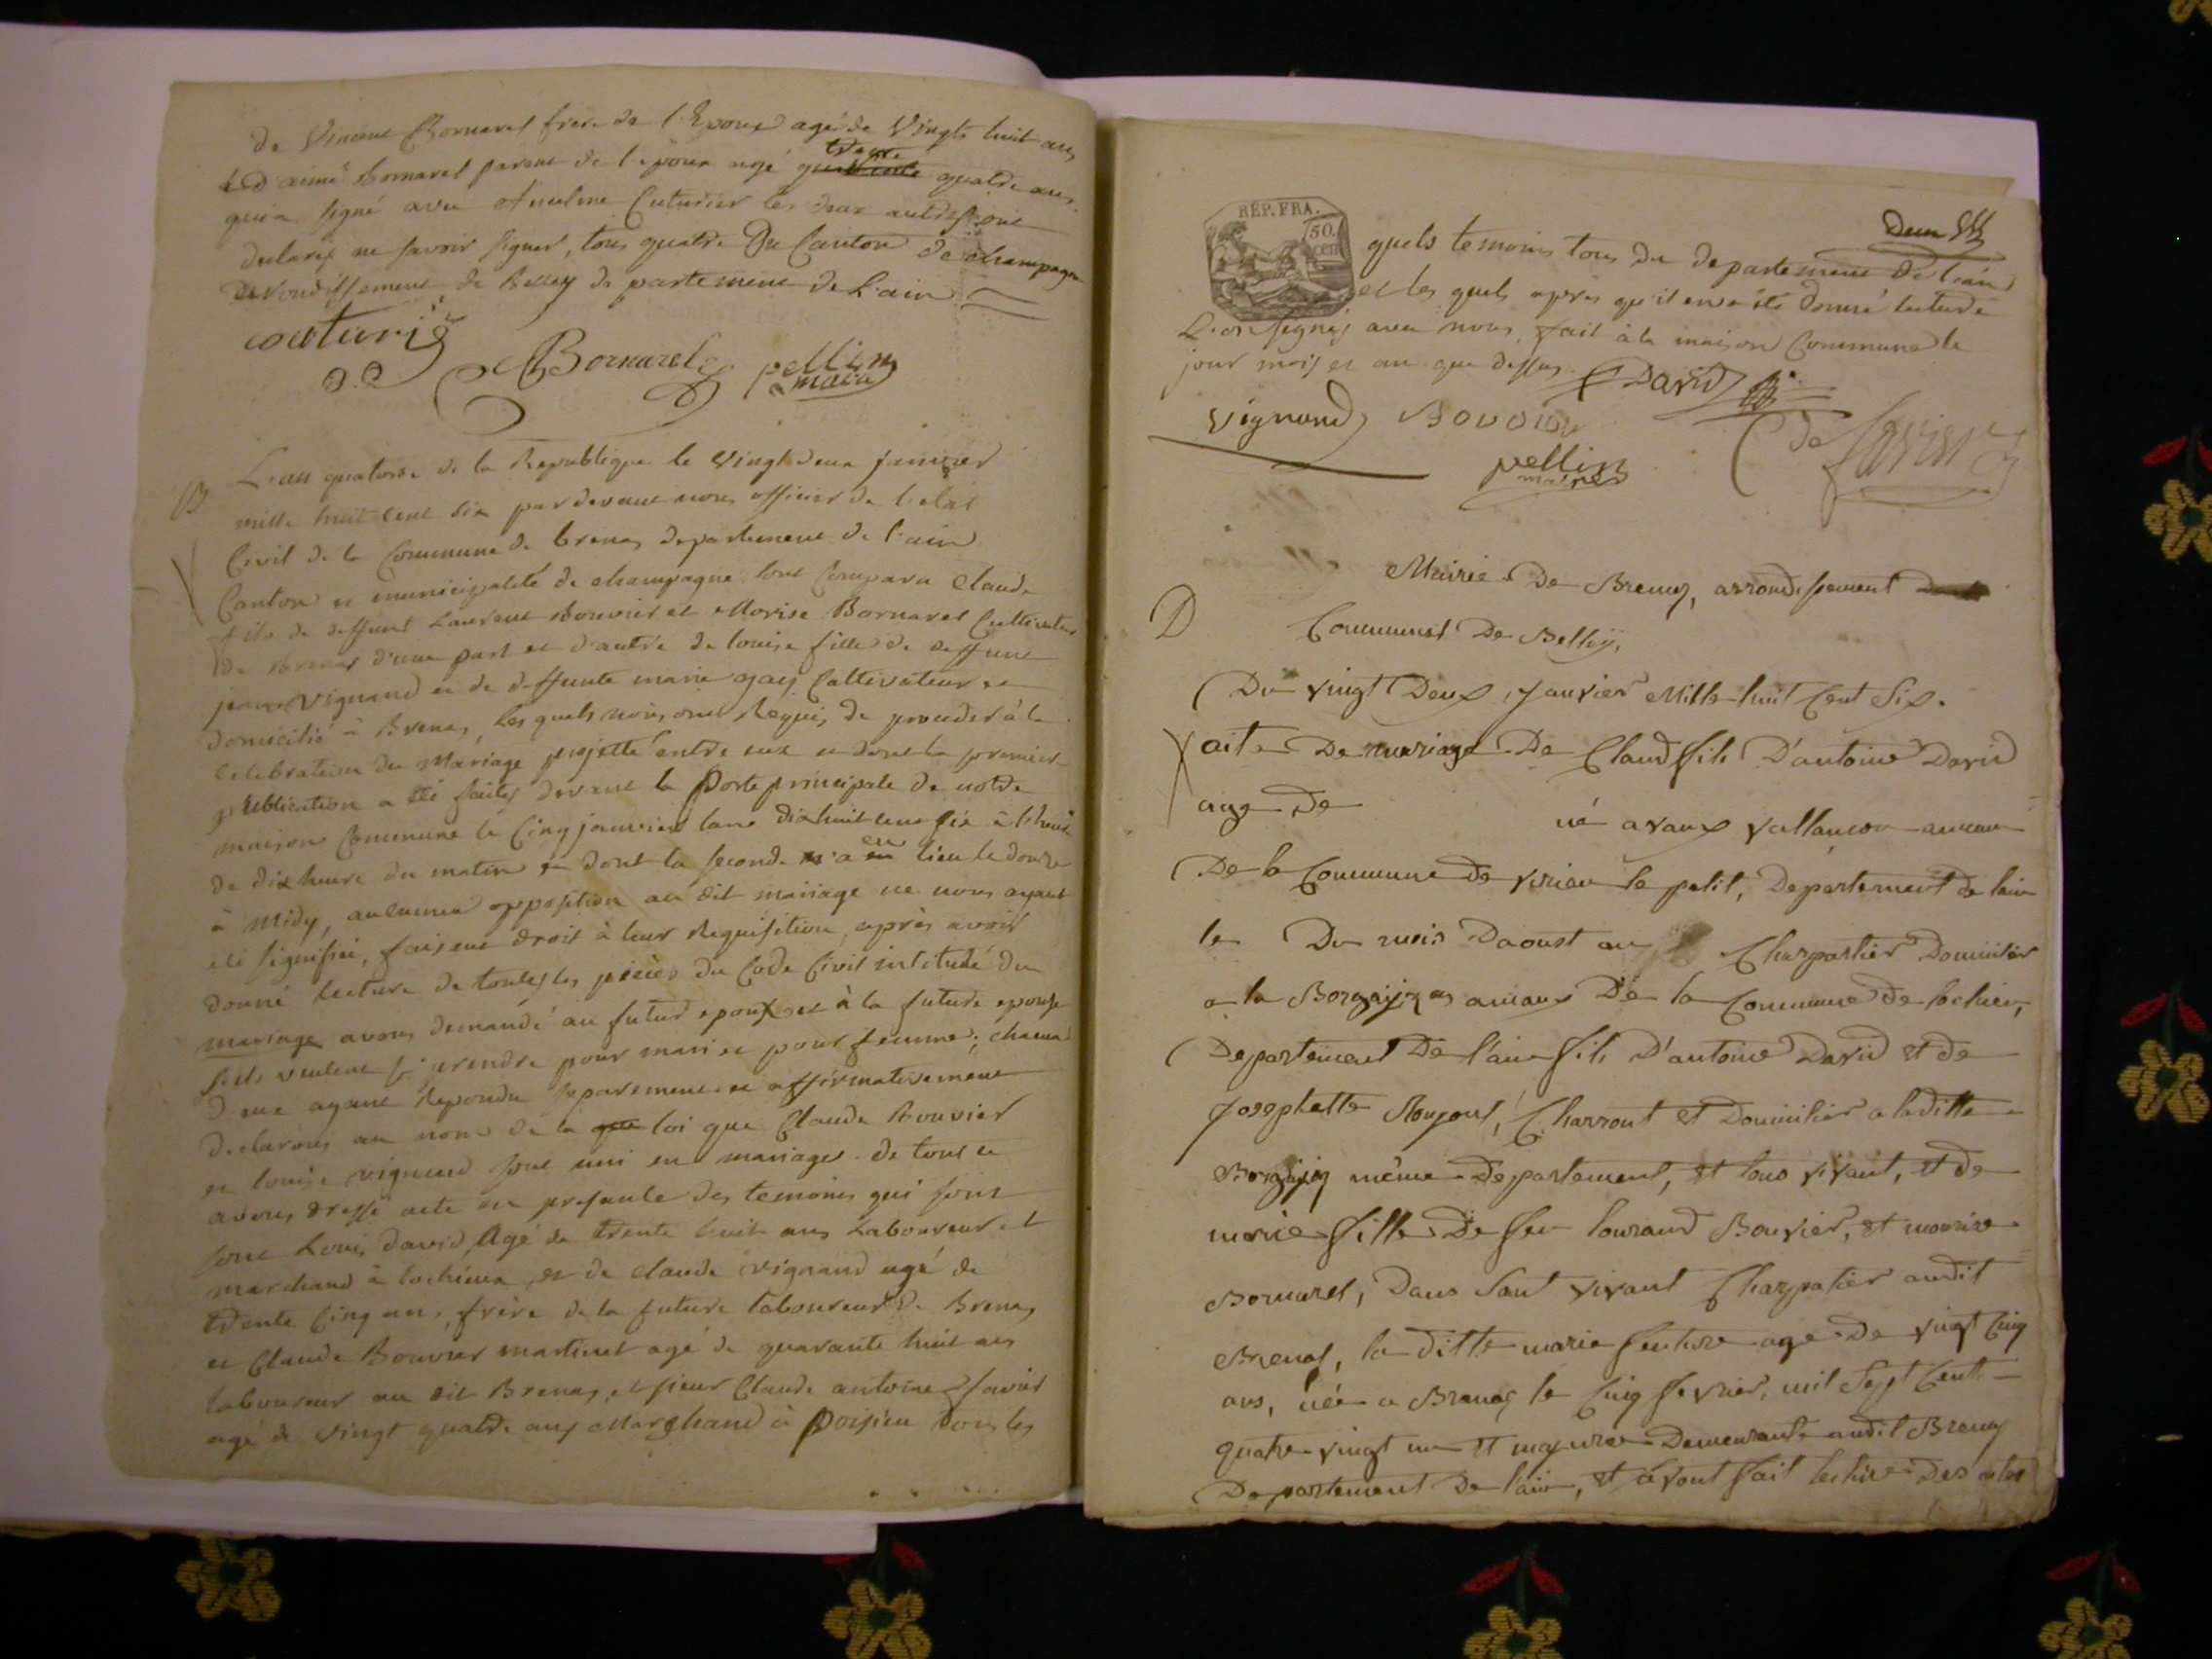 De Vincent Bornarel frere de l'Epoux agé de Vingts huit ans
et d'aimé Bornarel parent de l'epoux agé trente quatre ans
qui a signé avec Anselme Cuturier les deux autres ont
declaré ne savoir signer, tous quatre Du Canton de champagne
arrondissement de Belley departement de L'ain
couturié
Bornarel
pellin
maire
B
L'an quatorse de la Republique le Vingt deux janvier
mille huit cent six pardevant nous officier de l'etat
Civil de la Commune de brenas departement de l'ain
Canton et municipalité de champagne sont comparu Claude
fils de deffunt Laurent Bouvier et Morise Bornarel Cultivateur
de brenas d'une part et d'autre de louise fille de deffunt
Vignand et de deffunte marie gay Cultivateur et
domicilié à Brenas, les quels nous ont Requis de proceder à la
celebration du Mariage projetté entre eux et dont la premiere
publication a été faites devant la Porte principale de notre
maison Commune le Cinq janvier lan dixhuit cent six à l'heure
de dix heure du matin et dont la seconde a eu lieu le douze
à Midy, aucunne opposition au dit mariage ne nous ayant
été signifiée, faisant droit à leur Requisition, après avoir
donné lecture de toutes les pièces du Code Civil intitulé du
mariage avons demandé au futur epoux et à la future epouse
s'ils veulent se prendre pour mari et pour femme; chacun
D'eux ayant Repondu separement et affirmativement
declarons au nom de la loi que Claude Bouvier
et louise vignand sont uni en mariage. de tout ce
avons dressé acte en presente des temoins qui sont
sont Louis david Agé de trente huit ans Laboureur et
marchand à lochieux, et de claude vignand agé de
trente Cinq ans, frère de la future laboureur de Brenas
et Claude Bouvier martinet agé de quarante huit ans
laboureur au dit Brenas, et sieur Claude antoine Savier
agé de Vingt quatre ans Marchand à Poisieu tous les
REP. FRA.
50.
CEN
Deux
quels temoins tous du departement de l'ain
et les quels apres qu'il en a été donné lecture
L'on signés avec nous. fait à la maison Commune le
jour mois et an que dessus
David
Vignand
Bouvier
pellin
maire
Mairie De Brenaz, arrondissement
D
Communal De Belley,
Du vingt Deux, Janvier Mille huit Cent Six.
acte De mariage De Claud fils D'antoine David
aige De né avaux vallançon
De la Commune de virieu le petit, Departement de lain
le Du mois Daoust Charpantier Domicilier
a la Commune de lochieu,
Departement De l'ain fils D'antoine David et de
Josephette Charront et Domicilier a laditte
même Departement, et tous vivant, et de
marie fille De feu louraud Bouvier, et morise
Bornarel, Dans Sont vivant Charpatier audit
Brenas, la ditte marie feuture age De vingt Cinq
ans, née a Brenas le Cinq fevrier, mil Sept Cent
quatre vingt un et majure Demeurante audit Brenas
Departement De l'ain, et avont fait lecture Des actes